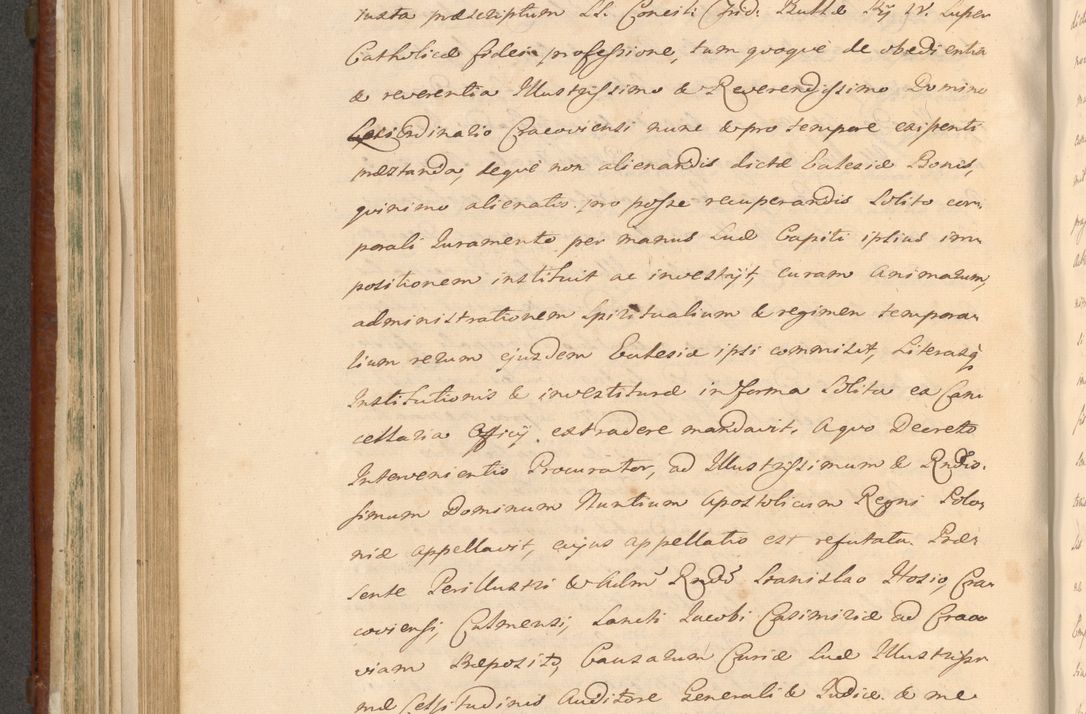 iuxta præscriptum SS. Concili Trid: Bullæ Pij IV. super
Catholicæ fidei professione, tum quoque de obedientia
& reverentia Illustrissimo & Reverendissimo Domino
Ordinario Cracoviensi nunc & pro tempore existenti
præstanda, deque non alienandis dictæ Ecclesiæ Bonis,
quinimo alienatis pro posse recuperandis solito cor-
porali Juramento per manus suæ Capiti ipsius im-
positionem instituit ac investijt, curam Animarum,
administrationem spiritualium & regimen tempora-
lium rerum ejusdem Ecclesiæ ipsi commisit, Literasq
Institutionis & investituræ in forma solita ex Can-
cellaria Officij extradere mandavit. A quo Decreto
Intervenientis Procurator, ad Illustrissimum & Rndis-
simum Dominum Nuntium Apostolicum Regni Polo-
niæ appellavit, cujus appellatio est refutata. Præ-
sente Perillustri & Adm Rndo Stanislao Hosio, Cra-
coviensi, Culmensi, Sancti Jacobi Casimiriæ ad Craco-
viam Præposito, Causarum Curiæ suæ Illustrissi-
mæ Celsitudinis Auditore Generali & Judice & me